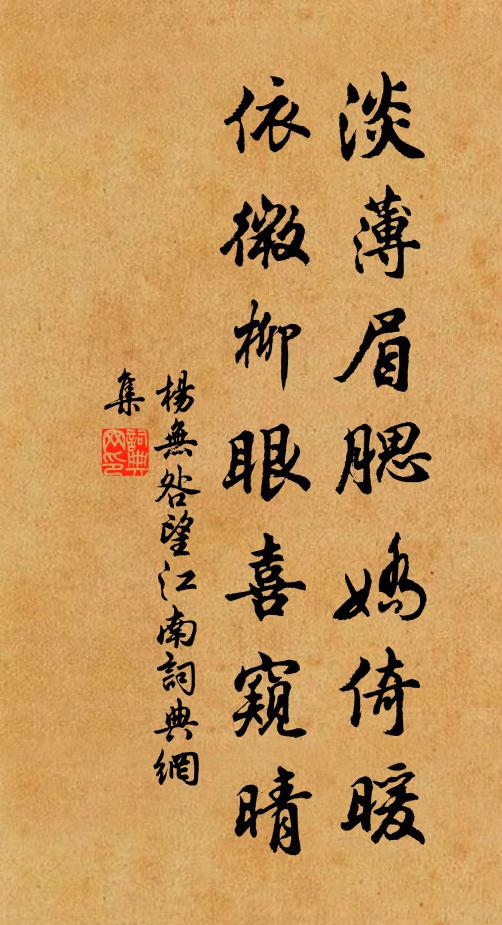 淡薄眉腮嬌倚暖
依微柳眼喜窺晴
楊無咎望江南詞典網
集
詞典網印